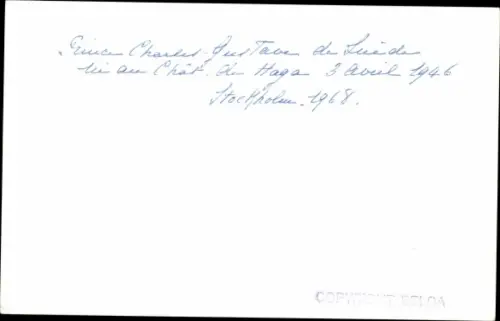 Prince Charles-Gustave de Suède
né au Chât. de Haga 3 avril 1946
Stockholm. 1968.
COPYRIGHT BELGA